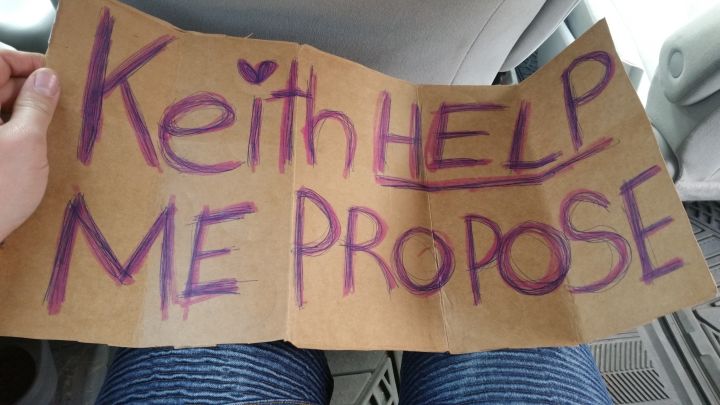 Keith HELP
ME PROPOSE